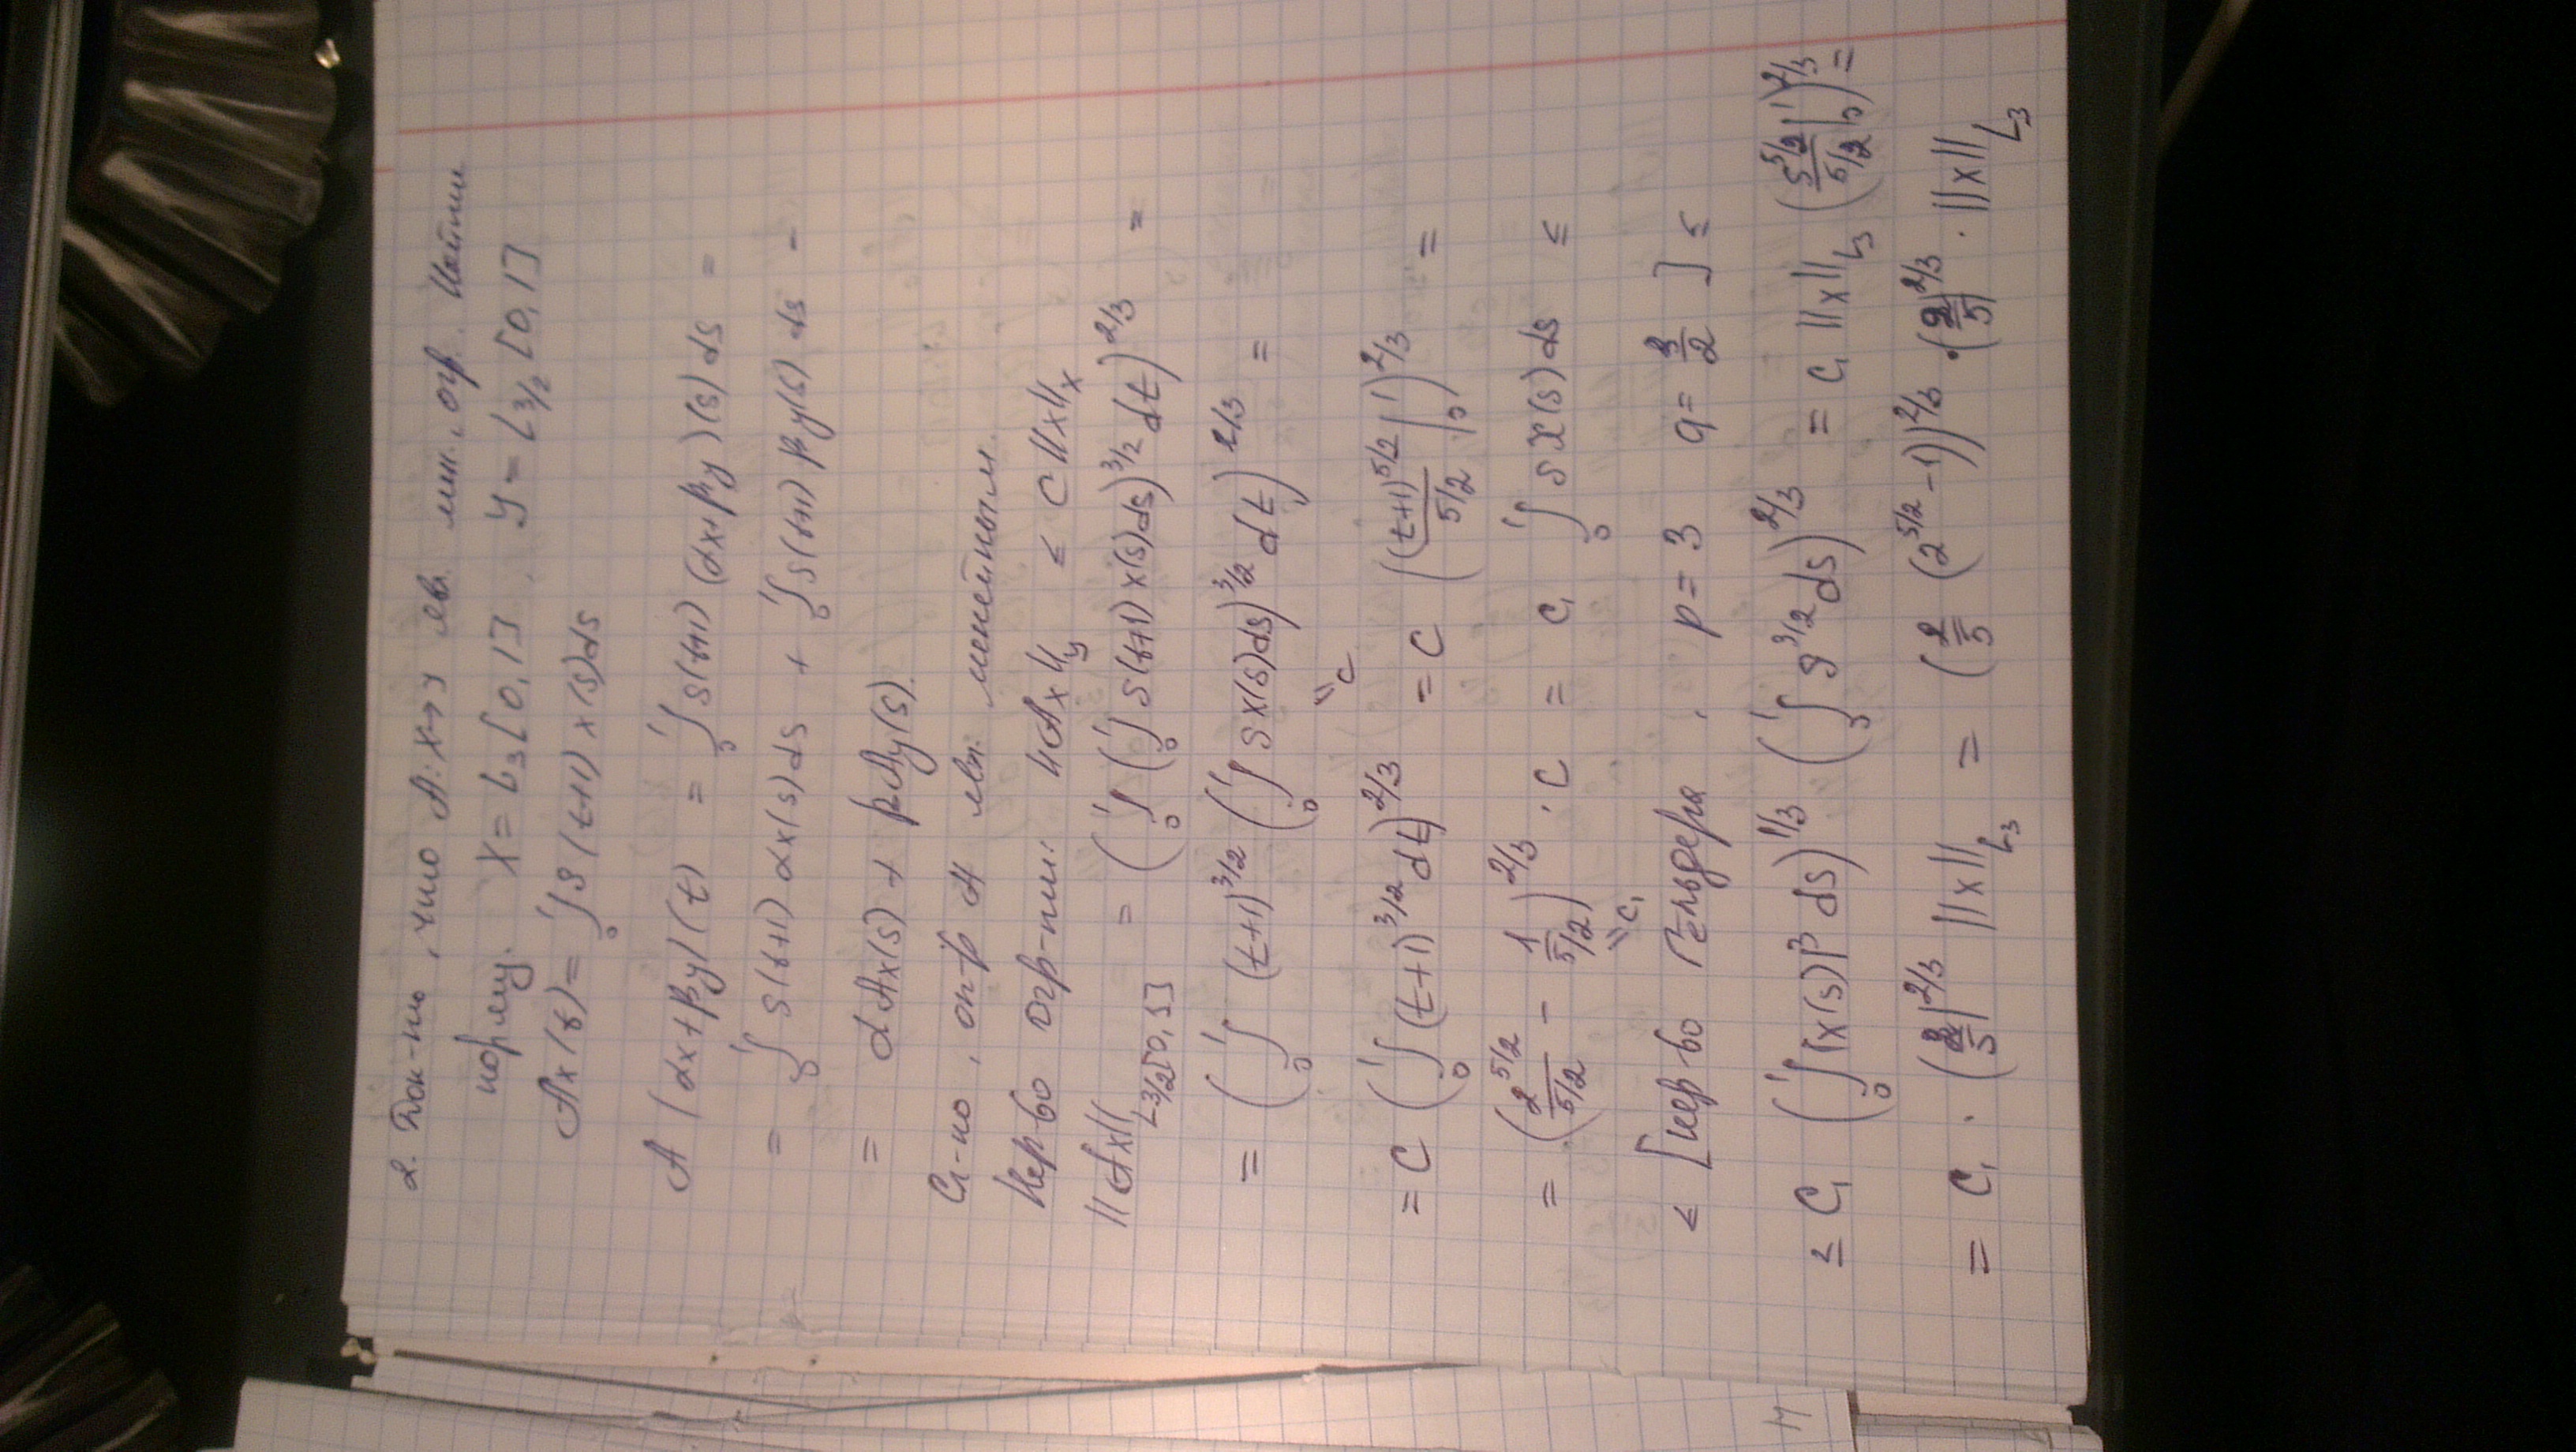 2. Док-ть, что A: X→Y явл. лин. огр. Найти
норму. X = L₃[0,1], Y = L_{3/2}[0,1]
Ax(t) = ∫₀¹ s(t+1) x(s)ds
A(αx+βy)(t) = ∫₀¹ s(t+1)(αx+βy)(s)ds =
= ∫₀¹ s(t+1)αx(s)ds + ∫₀¹ s(t+1)βy(s)ds -
= αAx(s) + βAy(s).
Сл-но, оп-р A явл. линейным.
Нер-во огр-ти: ||Ax||_y ≤ C||x||_x
||Ax||_{L3/2[0,1]} = (∫₀¹ (∫₀¹ s(t+1)x(s)ds)^{3/2} dt)^{2/3} =
= (∫₀¹ (t+1)^{3/2} (∫₀¹ sx(s)ds)^{3/2} dt)^{2/3} =
"c
= C (∫₀¹ (t+1)^{3/2} dt)^{2/3} = C ((t+1)^{5/2}/5/2 |₀¹)^{2/3} =
= (2^{5/2}/5/2 - 1/5/2)^{2/3} · C = C₁ ∫₀¹ s x(s)ds ≤
"c₁
≤ [нер-во Гёльдера, p=3 q=3/2] ≤
≤ C₁ (∫₀¹ |x(s)|³ ds)^{1/3} (∫₀¹ s^{3/2} ds)^{2/3} = C₁ ||x||_{L₃} (s^{5/2}/5/2 |₀¹)^{2/3} =
= C₁ · (2/5)^{2/3} ||x||_{L₃} = (2/5 (2^{5/2} -1))^{2/3} · (2/5)^{2/3} · ||x||_{L₃}